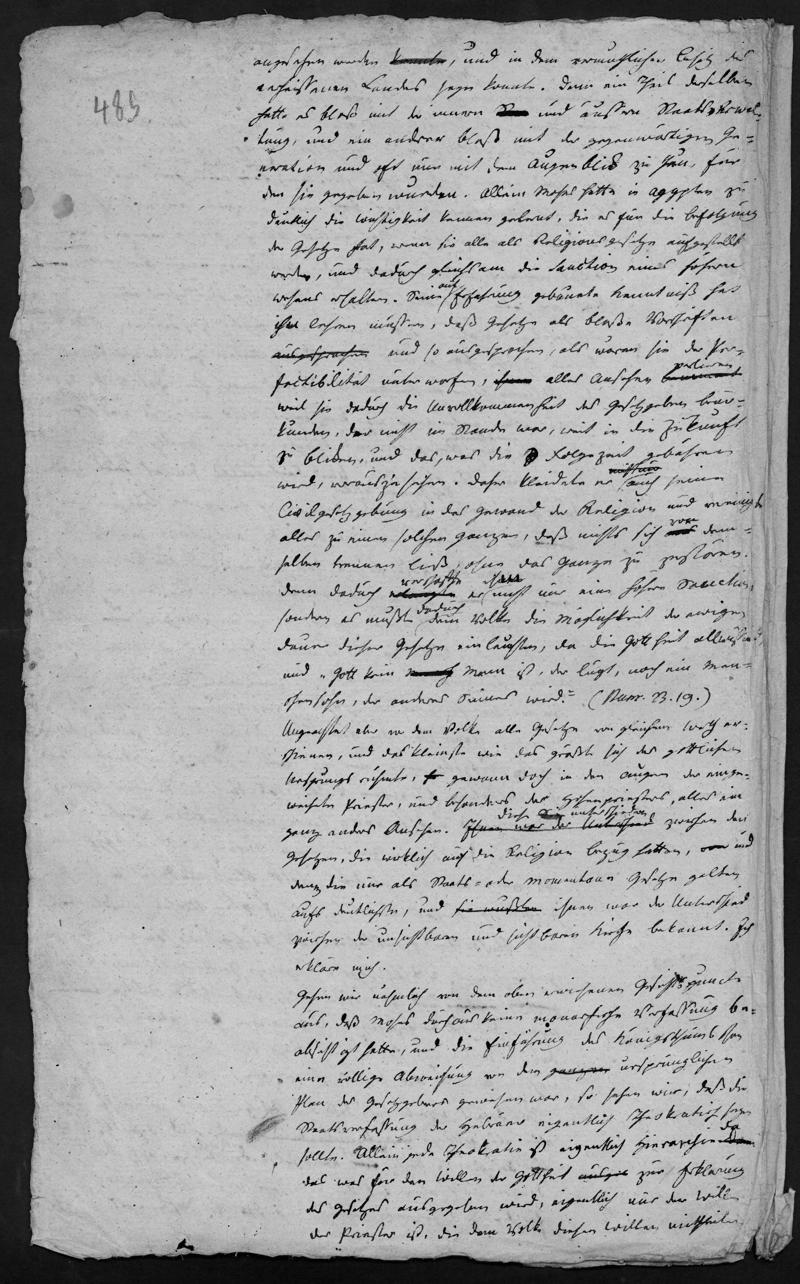 485
angesehen werden konnte, und in dem vermuthlichen Besitz des
verheissenen Landes seyn konnte. Denn ein Theil derselben
hatte es bloß mit der innern und äussern Staatsverwal-
tung, und ein anderer bloß mit der gegenwärtigen Ge-
neration und oft nur mit dem Augenblick zu thun, für
den sie gegeben wurden. Allein Moses hatte in Agypten zu
deutlich die Wichtigkeit kennen gelernt, die es für die Befolgung
der Gesetze hat, wenn sie alle als Religionsgesetze aufgestellt
werden, und dadurch gleichsam die Sanction eines höhern
Wesens erhalten. Seine auf Erfahrung gebaute Kenntniß hat
ihn lehren müssen, daß Gesetze als bloße Vorschriften
ausgesprochen und so ausgesprochen, als wären sie der Per-
fectibilität unterworfen, ihnen alles Ansehen verlieren
weil sie dadurch die Unvollkommenheit des Gesetzgebers beur-
kunden, der nicht im Stande war, weit in die Zukunft
zu blicken, und das, was die Folgezeit gebähren
wird, vorauszusehen. Daher kleidete er auch seine
Civilgesetzgebung in das Gewand der Religion und vereinigte
alles zu einem solchen Ganzen, daß nichts sich von dem-
selben trennen ließ, ohne das Ganze zu zerstören.
denn dadurch verschaffte er nicht nur eine höhere Sanction,
sondern es mußte dadurch dem Volke die Möglichkeit der ewigen
Dauer dieser Gesetze einleuchten, da die Gottheit allwissend
und „Gott kein Mann ist, der lügt, noch ein Men-
schensohn, der anderes Sinnes wird." (Num. 23. 19.)
Ungeachtet aber vor dem Volke alle Gesetze von gleichem Werth er-
schienen, und das kleinste wie das größte sich des göttlichen
Ursprungs rühmte, so gewann doch in den Augen der einge-
weihten Priester, und besonders des Hohenpriesters, alles ein
ganz anderes Ansehen. Ihnen war der Unterschied diese unterschieden zwischen den
Gesetzen, die wirklich auf die Religion bezug hatten, und
denen die nur als Staats- oder momentane Gesetze galten
aufs deutlichste, und sie wußten ihnen war der Unterschied
zwischen der unsichtbaren und sichtbaren Kirche bekannt. Ich
erkläre mich.
Gehen wir nähmlich von dem oben erwiesenen Gesichtspuncte
aus, daß Moses durchaus keine monarchische Verfassung be-
absichtigt hatte, und die Einführung des Königsthums schon
eine völlige Abweichung von dem ganzen ursprünglichen
Plan des Gesetzgebers gewesen war, so sehen wir, daß die
Staatsverfassung der Hebräer eigentlich Theokratisch seyn
sollte. Allein jede Theokratie ist eigentlich Hierarchie da
das was für den Willen der Gottheit zur Erklärung
des Gesetzes ausgegeben wird, eigentlich nur der Wille
der Priester ist, die dem Volke diesen Willen mittheilen